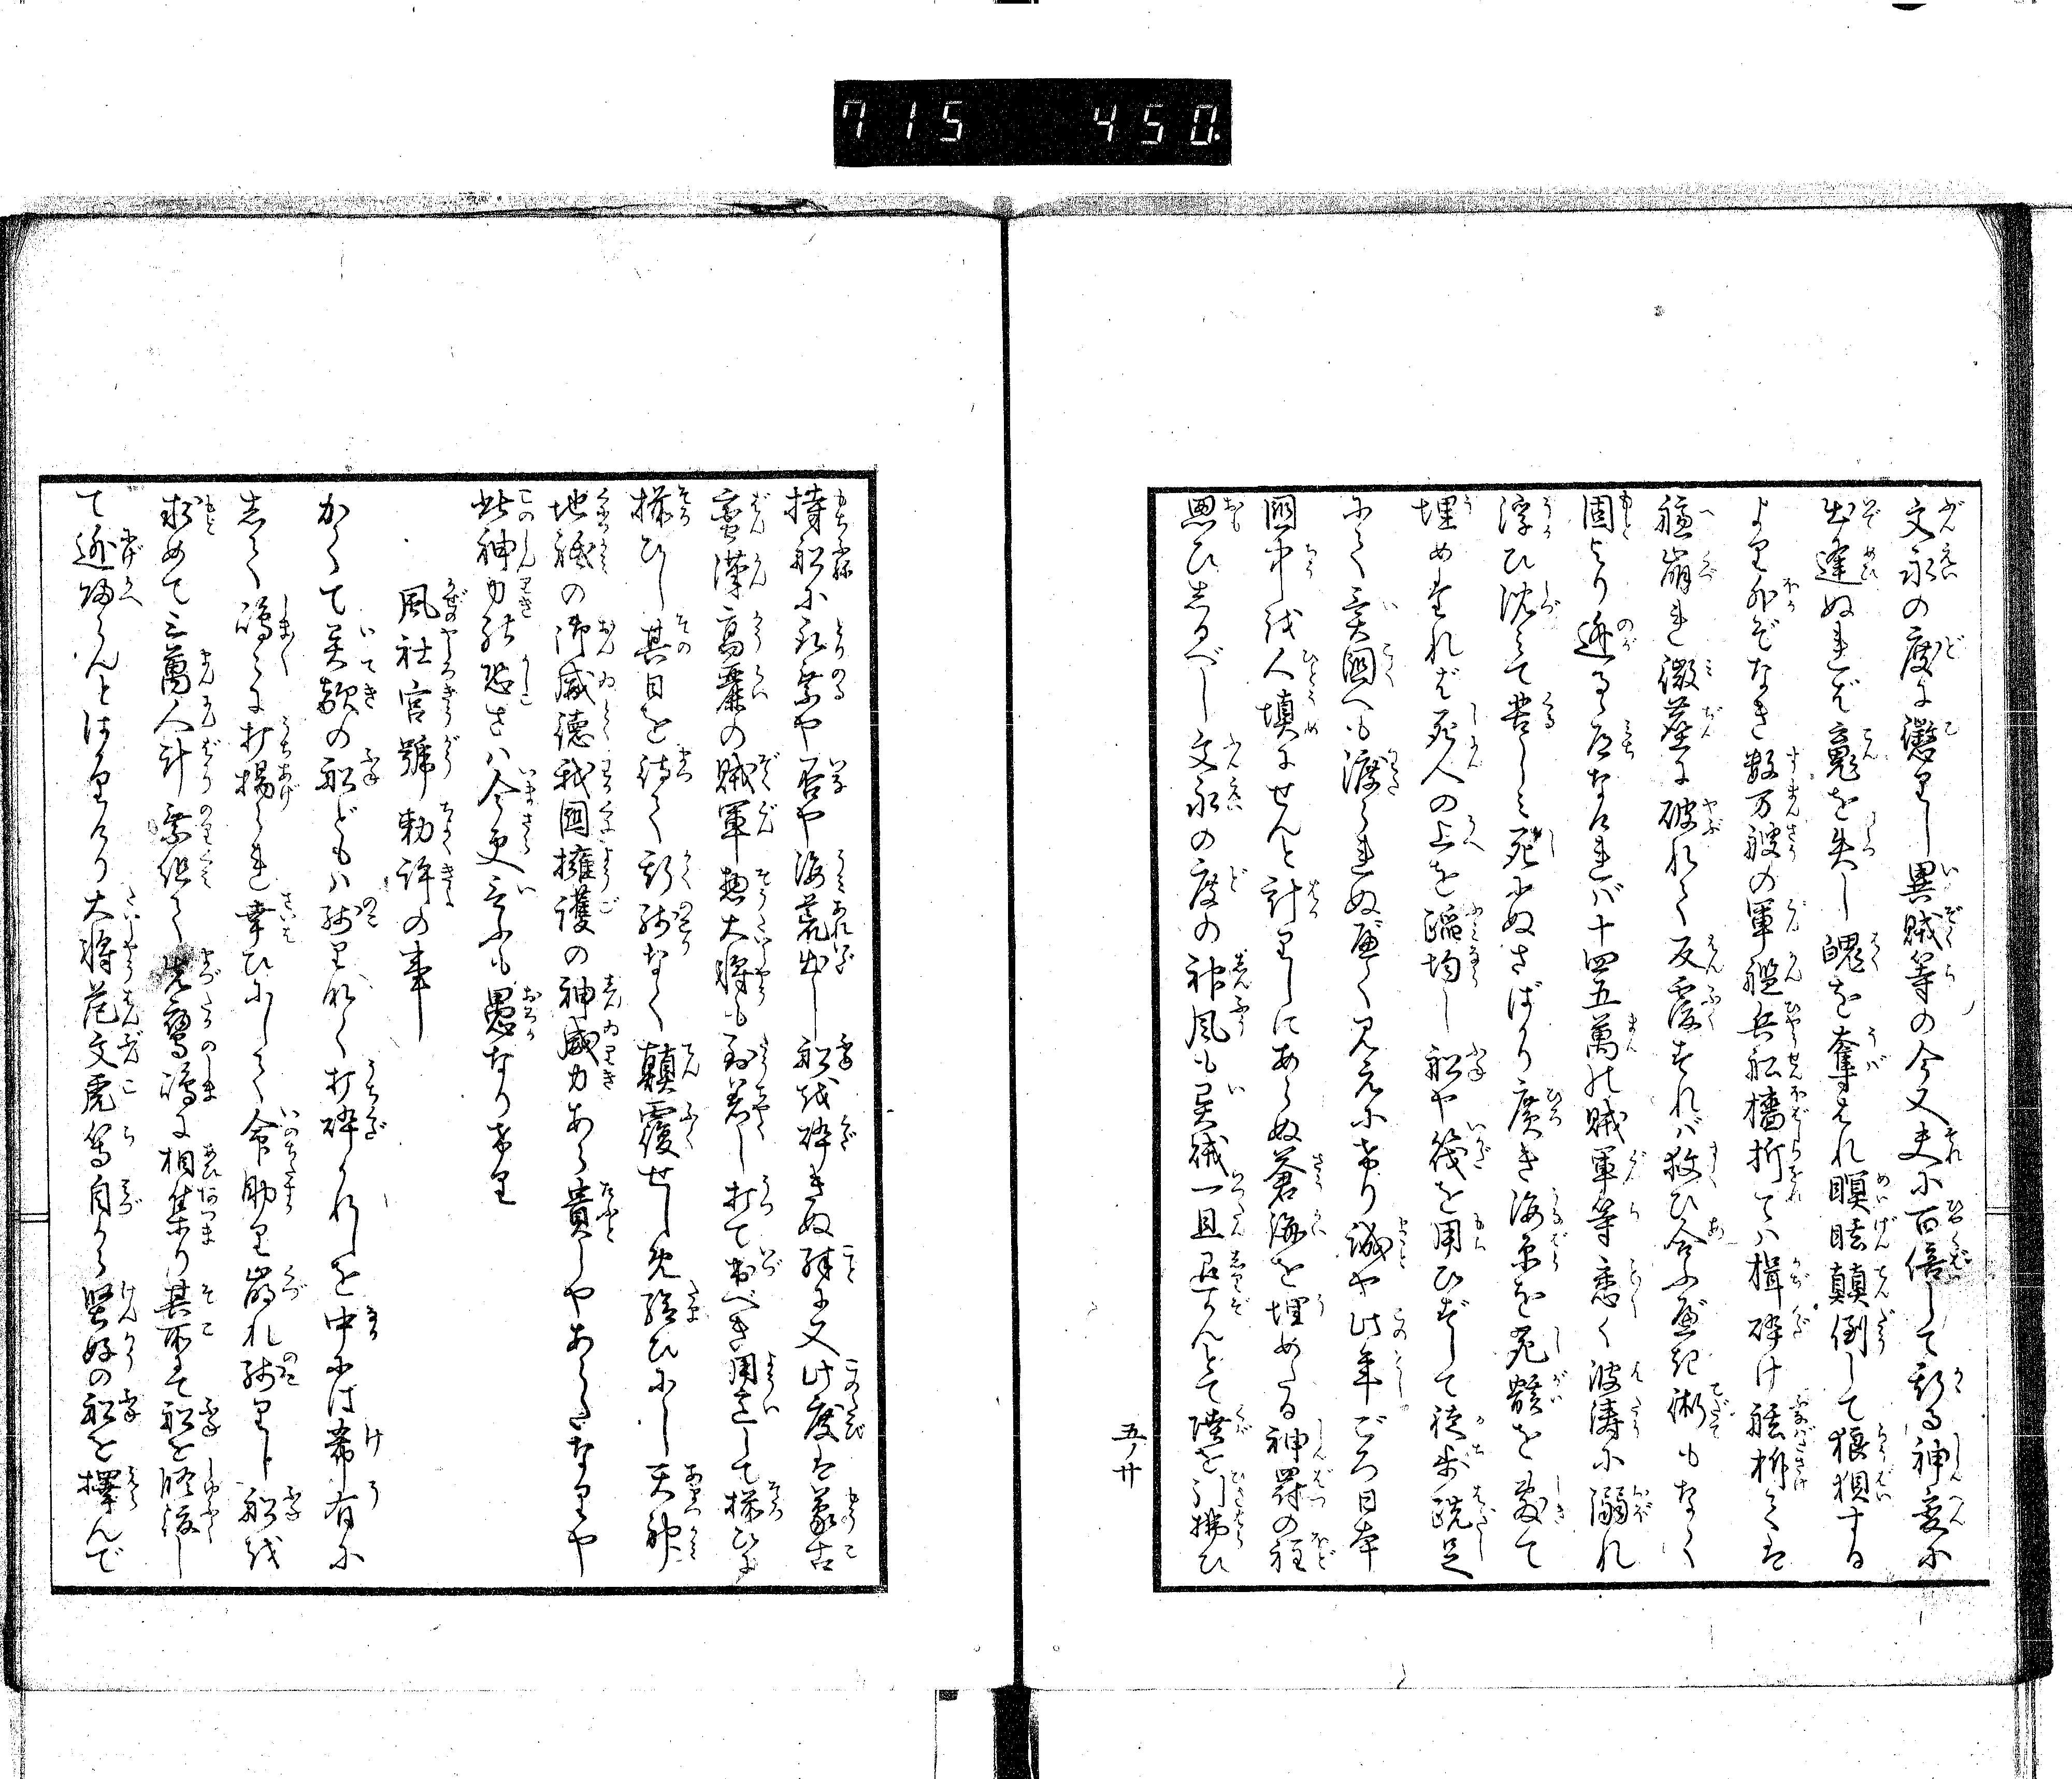 715 450.
文永の度に懲りし異賊等の今又夫に百倍して斯る神変に
出逢ぬれば竟を失し魄を奪はれ瞑眩顛倒して狼狽する
より外ぞなき数万艘の軍艦兵船檣折ては楫砕け舷摧ては
艫崩れ微塵に破れて反覆すれバ救ひ合ふべき術もなく
固より逃る道なけれバ十四五萬の賊軍等悉く波濤に溺れ
浮ひ沈みて苦しミ死しぬさばかり廣き海原を死骸を敷て
埋めけれど死人の上を蹈均し船や筏を用ひずして徒歩跣足
にて異國へも渡られぬべく見えにけり誠や此年ごろ日本
國中を人填にせんと計りしにあらぬ蒼海を埋めたる神罸の程
思ひしるべし文永の度の神風も異賊一旦退かんとて陣を引拂ひ
五ノ廿
持船に取乗や否や海荒出し船を砕きぬ殊に又此度は蒙古
蛮漢高麗の賊軍惣大将も到着し打て出べき用意して揃ひに
揃ひし其日を待て斯残なく顛覆せしめ給ひにし天神
地祇の御威徳我國擁護の神威力あら貴しやあらたなりや
此神力の恐さハ今更言ふも愚なりけり
風社宮號勅許の事
かくて異敵の船どもハ残りなく打砕かれしを中には希有に
して嶋々に打揚られ幸ひにして命助り崩れ残りし船を
求めて三萬人計乗組て先鷹嶋に相集り其所にて船を修復し
て逃帰らんとはかりけり大将范文虎等自から堅好の船を擇んで